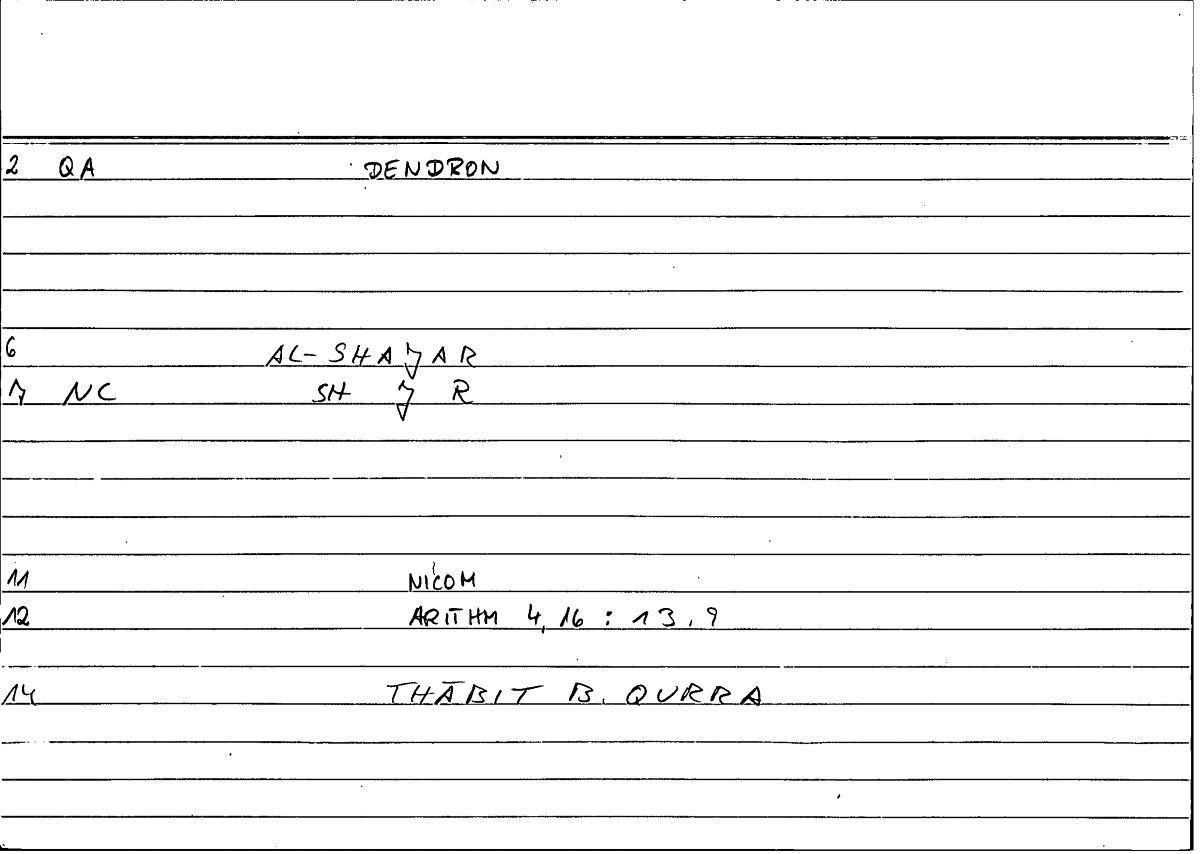 2 QA DENDRON
6 AL-SHAJAR
7 NC SH J R
11 NICOM
12 ARITHM 4,16 : 13.9
14 THĀBIT B. QURRA